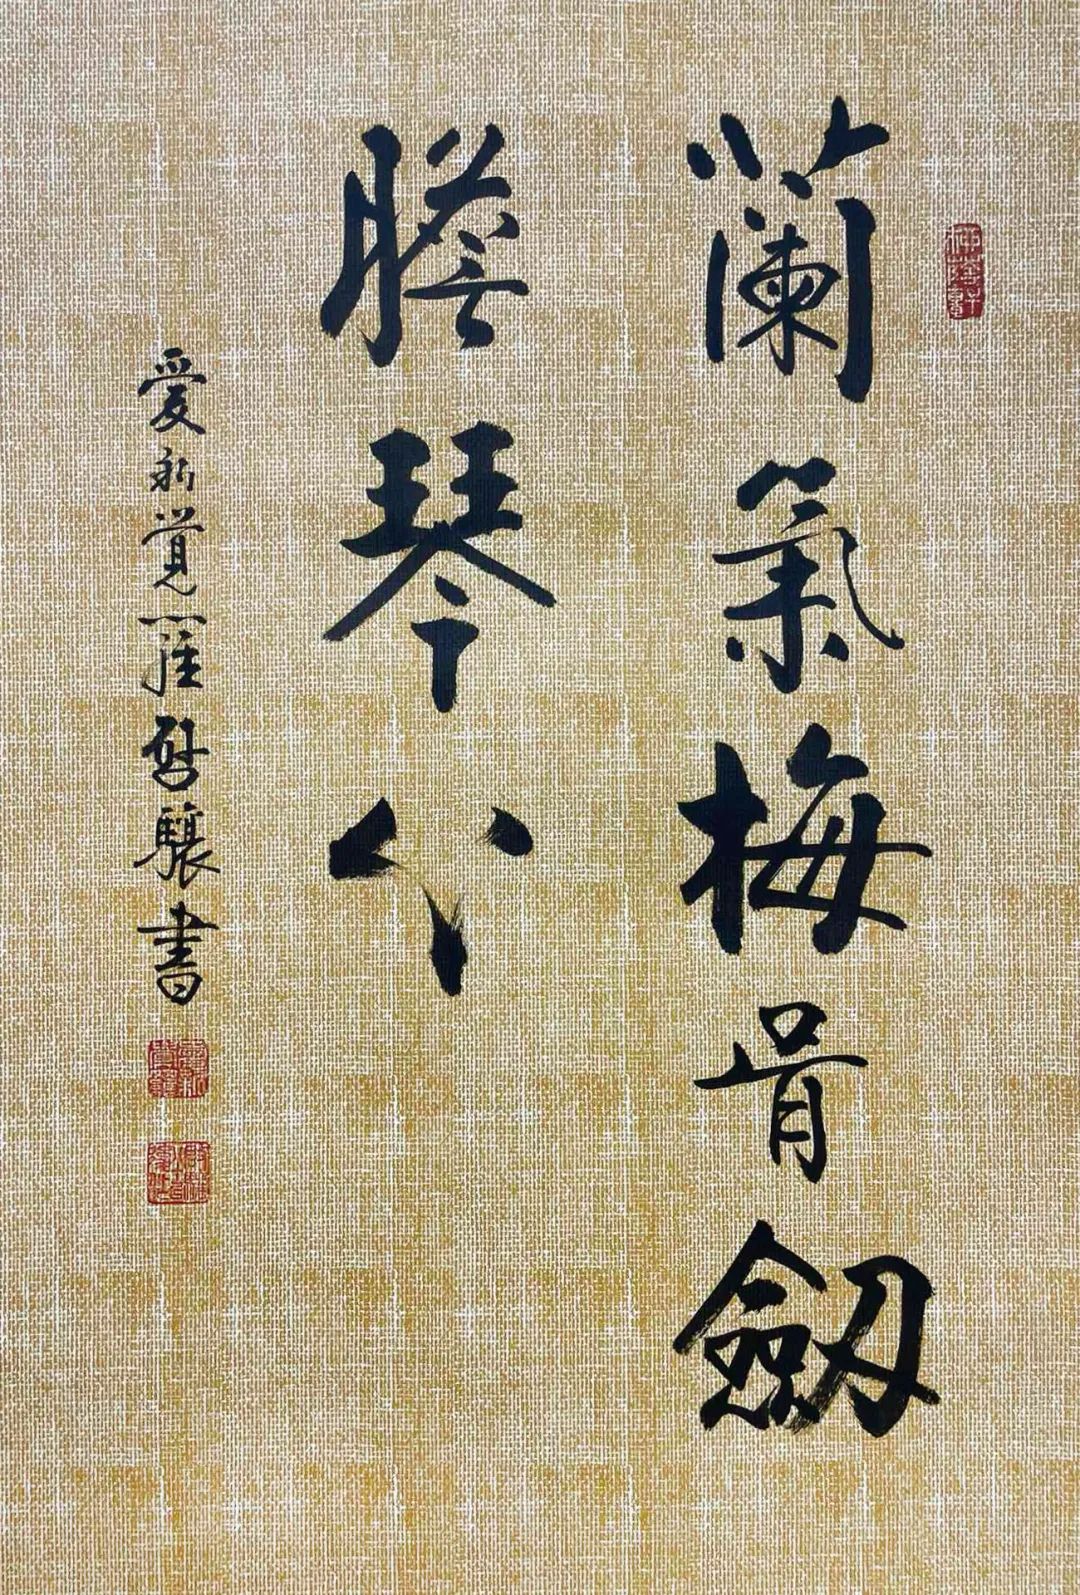 蘭氣梅骨劔
膽琴心
愛新覺羅啓驤書